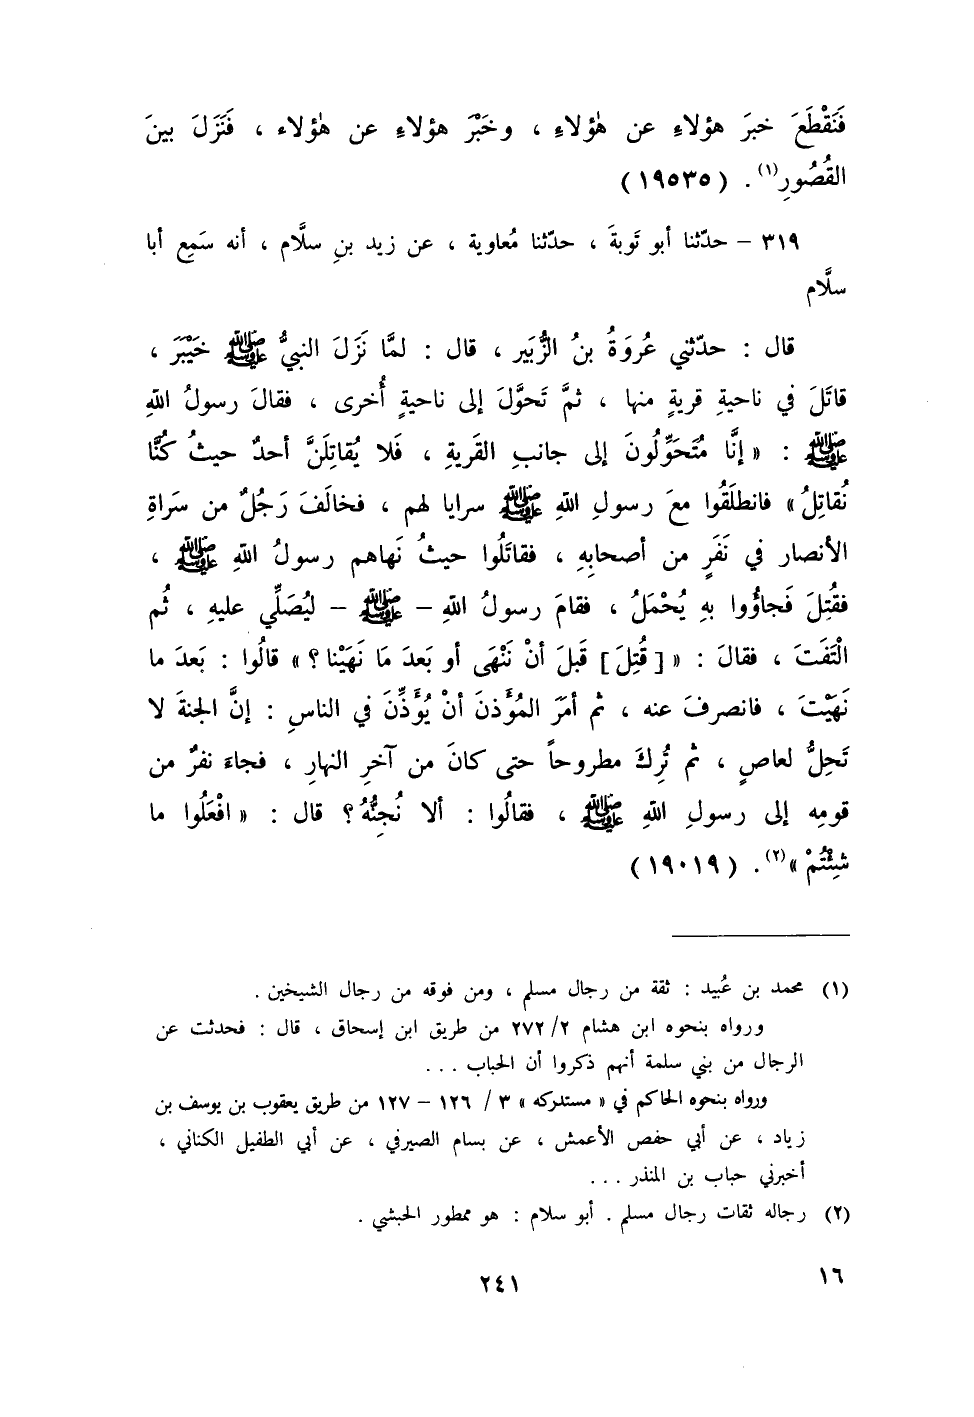 فَنَقْطَعَ خبرَ هؤلاءِ عن هٰؤلاءِ ، وخَبْرَ هؤلاءِ عن هٰؤلاء ، فَنَزَلَ بينَ
القُصُورِ(١) . (١٩٥٣٥)
٣١٩ – حدّثنا أبو تَوبةَ ، حدّثنا مُعاوية ، عن زيد بنِ سلَّام ، أنه سَمِع أبا
سلَّام
قال : حدّثني عُروَةُ بنُ الزُّبَير ، قال : لمَّا نَزَلَ النبيُّ ﷺ خَيْبَرَ ،
قاتَلَ في ناحيةِ قريةٍ منها ، ثمَّ تَحوَّلَ إلى ناحيةٍ أُخرى ، فقالَ رسولُ اللهِ
ﷺ : « إنَّا مُتَحَوِّلُونَ إلى جانبِ القَريةِ ، فَلا يُقاتِلَنَّ أحدٌ حيثُ كُنَّا
نُقاتِلُ » فانطلَقُوا معَ رسولِ اللهِ ﷺ سرايا لهم ، فخالَفَ رَجُلٌ من سَراةِ
الأنصار في نَفَرٍ من أصحابِهِ ، فقاتَلُوا حيثُ نَهاهم رسولُ اللهِ ﷺ ،
فقُتِلَ فَجاؤُوا بهِ يُحْمَلُ ، فقامَ رسولُ اللهِ – ﷺ – ليُصَلِّي عليهِ ، ثُم
الْتَفَتَ ، فقالَ : « [ قُتِلَ ] قَبلَ أنْ نَنْهَى أو بَعدَ مَا نَهَيْنا ؟ » قالُوا : بَعدَ ما
نَهَيْتَ ، فانصرفَ عنه ، ثم أمَرَ المُؤَذنَ أنْ يُؤَذِّنَ في الناسِ : إنَّ الجنةَ لا
تَحِلُّ لعاصٍ ، ثم تُرِكَ مطروحاً حتى كانَ من آخرِ النهارِ ، فجاءَ نفرٌ من
قومِه إلى رسولِ اللهِ ﷺ ، فقالُوا : ألا نُجِنُّهُ ؟ قال : « افْعَلُوا ما
شِئْتُمْ »(٢) . (١٩٠١٩)
(١) محمد بن عُبيد : ثقة من رجال مسلم ، ومن فوقه من رجال الشيخين .
ورواه بنحوه ابن هشام ٢٧٢/٢ من طريق ابن إسحاق ، قال : فحدثت عن
الرجال من بني سلمة أنهم ذكروا أن الحباب . . .
ورواه بنحوه الحاكم في « مستدركه » ٣ / ١٢٦ – ١٢٧ من طريق يعقوب بن يوسف بن
زياد ، عن أبي حفص الأعمش ، عن بسام الصيرفي ، عن أبي الطفيل الكناني ،
أخبرني حباب بن المنذر . . .
(٢) رجاله ثقات رجال مسلم . أبو سلام : هو ممطور الحبشي .
٢٤١
١٦